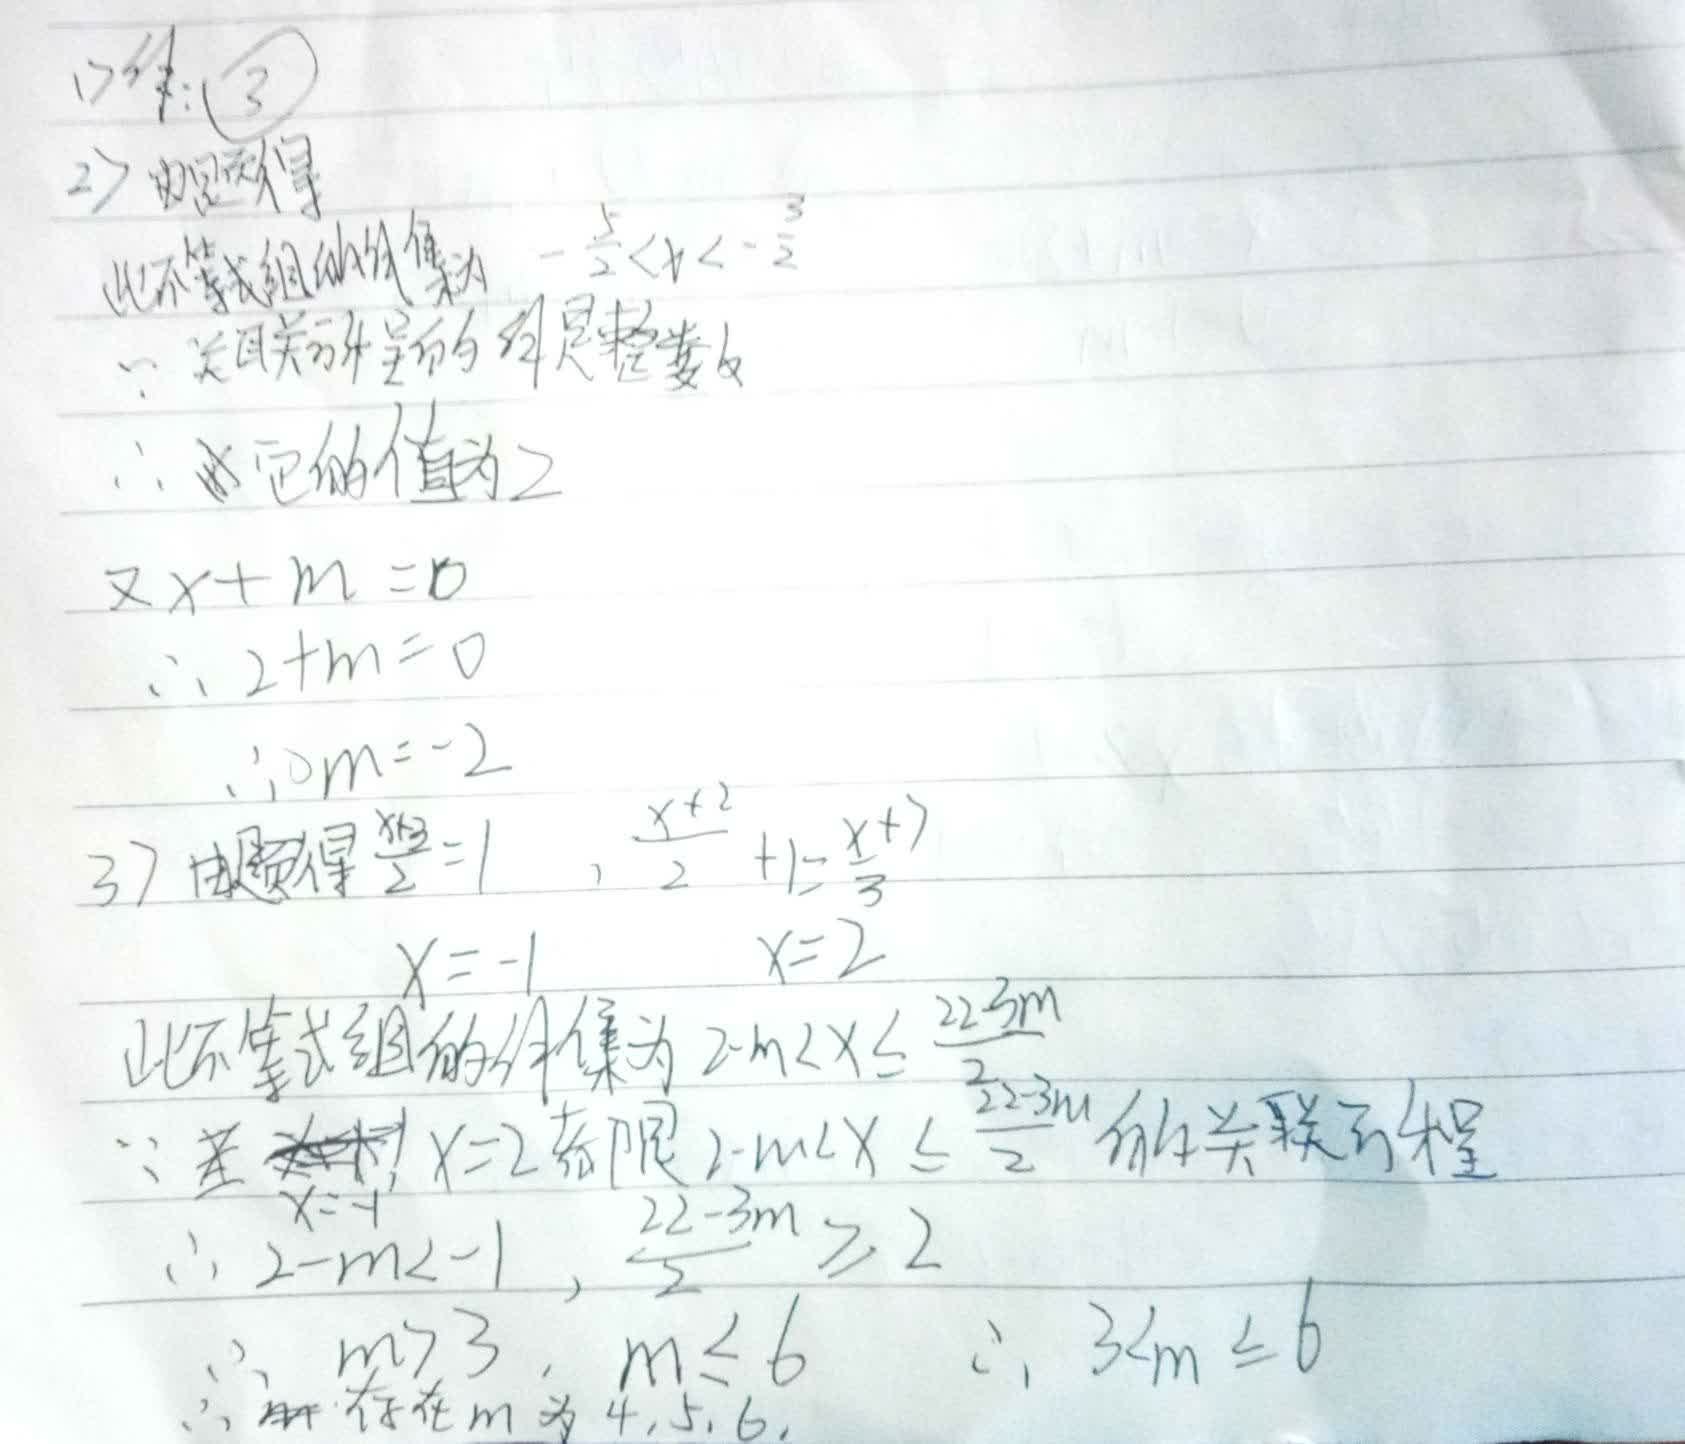 1> 解: ③
2> 由题得
此不等式组的解集为 -5/2<x<-3/2
∵ 关联方程的解是整数
∴ 它的值为2
又x+m=0
∴ 2+m=0
∴ m=-2
3> 由题得 (x+3)/2=1 , (x+2)/2+1=(x+7)/3
x=-1 x=2
此不等式组的解集为 2-m<x≤(22-3m)/2
∵ x=-1 x=2 2-m<x≤(22-3m)/2 的关联方程
∴ 2-m<-1 , (22-3m)/2≥2
∴ m>3 , m≤6 ∴ 3<m≤6
∴ 存在m为4,5,6.